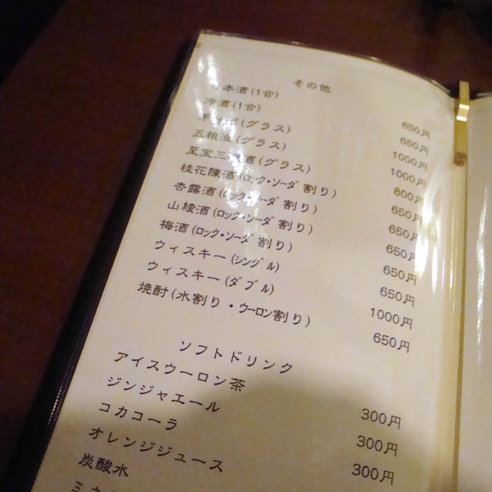 その他
日本酒(1合) 650円
冷酒(1合) 650円
(グラス) 1000円
五粮液(グラス) 1000円
至宝三鞭酒(グラス) 800円
桂花陳酒(ロック・ソーダ割り) 650円
杏露酒(ロック・ソーダ割り) 650円
山楂酒(ロック・ソーダ割り) 650円
梅酒(ロック・ソーダ割り) 650円
ウィスキー(シングル) 650円
ウィスキー(ダブル) 1000円
焼酎(水割り・ウーロン割り) 650円
ソフトドリンク
アイスウーロン茶 300円
ジンジャエール 300円
コカコーラ 300円
オレンジジュース
炭酸水